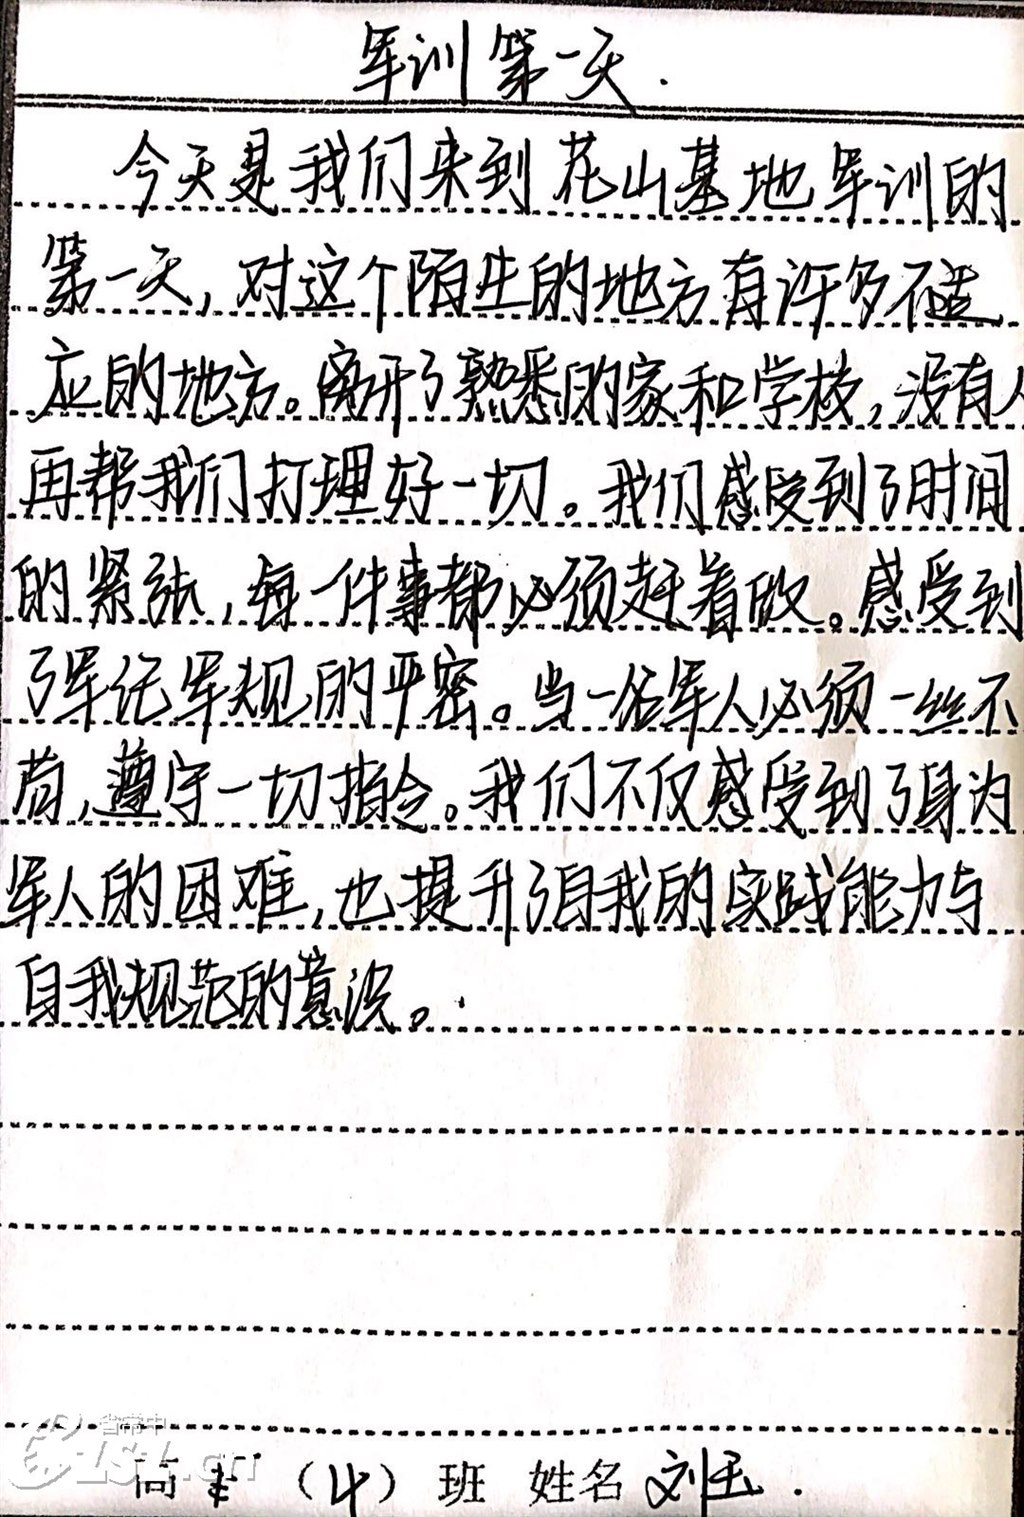 军训第一天.
今天是我们来到花山基地军训的
第一天,对这个陌生的地方有许多不适
应的地方。离开了熟悉的家和学校,没有人
再帮我们打理好一切。我们感受到了时间
的紧张,每一件事都必须赶着做。感受到
了军纪军规的严密。当一名军人必须一丝不
苟,遵守一切指令。我们不仅感受到了身为
军人的困难,也提升了自我的实践能力与
自我规范的意识。
省常中
CSZ.cn
高 (4) 班 姓名 刘玉.